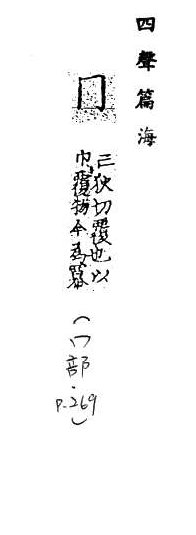 四聲篇海
冂
亡狄切覆也以
巾覆物今爲冪
(冖部.
p.269)